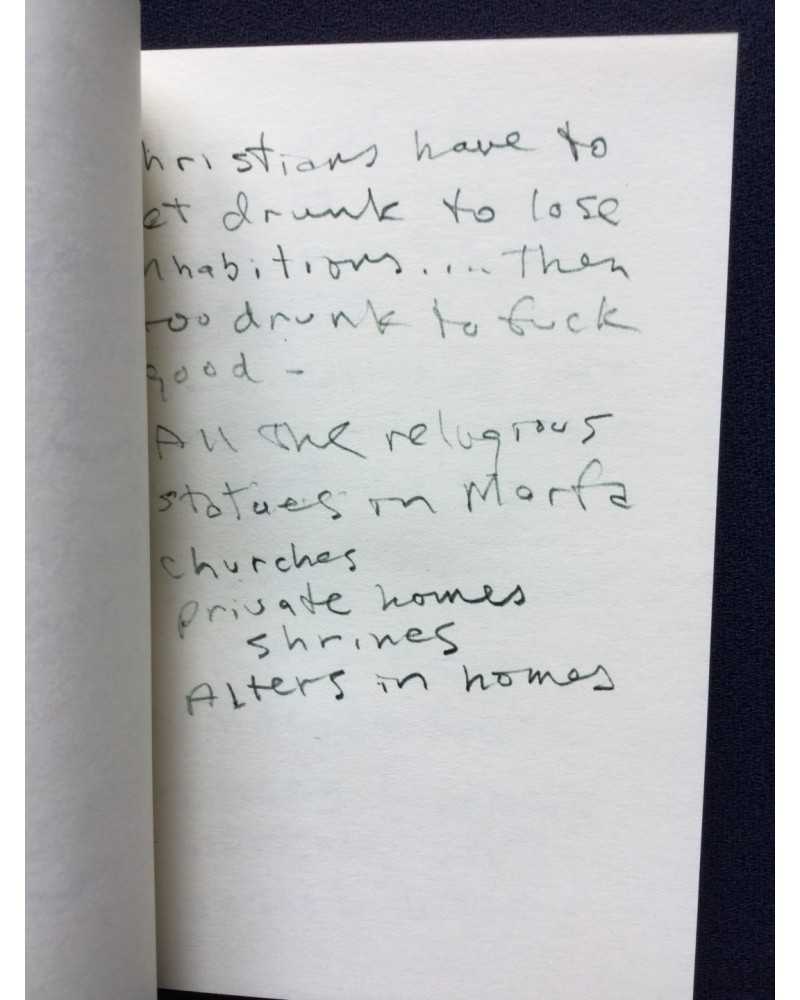 hristians have to
et drunk to lose
nhabitions.... Then
too drunk to fuck
good -
All the relugious
statues in Marfa
churches
private homes
shrines
Alters in homes